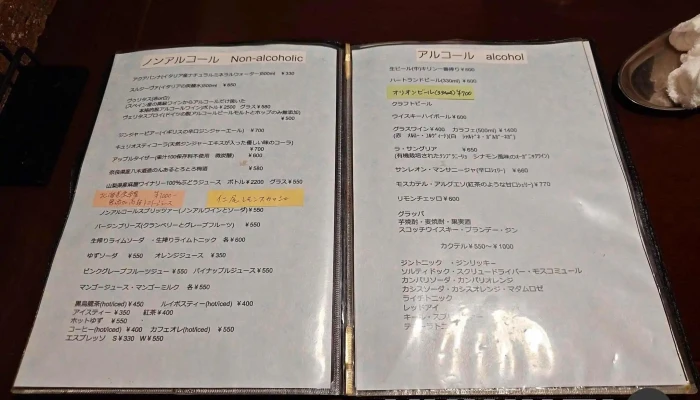 ノンアルコール Non-alcoholic
アクアパンナ(イタリア産ナチュラルミネラルウォーター500ml) ¥330
¥850
(スペイン産の高級ワインからアルコールだけ抜いた
本格的脱アルコールワイン)ボトル¥2500 グラス¥580
ヴェリタスブロイ(ドイツの脱アルコールビールモルトとホップのみ無添加)
¥500
ジンジャービアー(イギリスの辛口ジンジャーエール) ¥700
キュリオスティコーラ(天然ジンジャーエキスが入った優しい味のコーラ)
¥700
アップルタイザー(果汁100保存料不使用 微炭酸) ¥600
¥580
山梨県蒼龍葡萄ワイナリー100%ぶどうジュース ボトル¥2200 グラス¥550
ノンアルコールスプリッツァー(ノンアルワインとソーダ)¥550
バージンブリーズ(クランベリーとグレープフルーツ) ¥550
生搾りライムソーダ ・生搾りライムトニック 各¥600
ゆずソーダ ¥550 オレンジジュース ¥350
ピンクグレープフルーツジュース ¥550 パイナップルジュース¥550
マンゴージュース・マンゴーミルク 各¥550
黒烏龍茶(hot/iced)¥450 ルイボスティー(hot/iced) ¥400
アイスティー ¥350 紅茶¥400
ホットゆず ¥550
コーヒー(hot/iced) ¥400 カフェオレ(hot/iced) ¥550
エスプレッソ S¥330 W¥550
アルコール alcohol
生ビール(中)キリン一番搾り¥600
ハートランドビール(330ml) ¥600
オリオンビール(350ml)¥700
クラフトビール
ウイスキーハイボール¥600
グラスワイン¥400 カラフェ(500ml) ¥1400
ラ・サングリア ¥650
サンレオン・マンサニージャ(辛口シェリー) ¥660
モスカテル・アルグエソ(紅茶のような甘口シェリー)¥770
リモンチェッロ¥600
グラッパ
芋焼酎・麦焼酎・黒実酒
スコッチウイスキー・ブランデー・ジン
カクテル¥550~¥1000
ジントニック ・ジンリッキー
ソルティドック・スクリュードライバー・モスコミュール
カンパリソーダ・カンパリオレンジ
カシスソーダ・カシスオレンジ・マダムロゼ
ライチトニック
レッドアイ